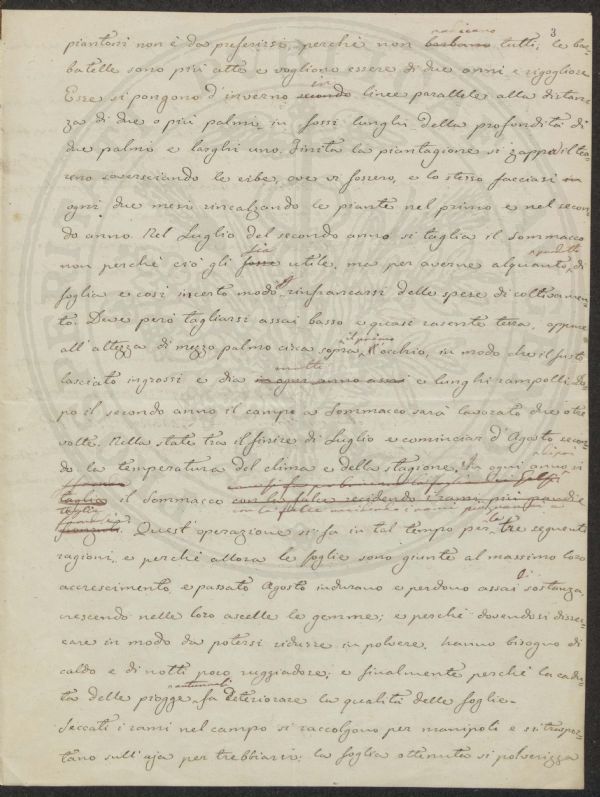 3
radicano
piantoni non è da preferirsi, perchè non barbano tutti; le bar=
batelle sono più atte e vogliono essere di due anni e rigogliose
in
Esse si pongono d'inverno secondo linee parallele alla distan=
za di due o più palmi, in fossi lunghi della profondità di
due palmi e larghi uno. Finita la piantagione si zappa il ter=
reno rovesciando le erbe, ove vi fossero, e lo stesso facciasi in
ogni due mesi rincalzando le piante nel primo e nel secon
do anno. Nel Luglio del secondo anno si taglia il Sommacco
sia
non perchè ciò gli fosse utile, ma per averne alquanto di
foglia e così in certo modo rinfrancarsi delle spese di coltivamen=
to. Deve però tagliarsi assai basso e quasi rasente terra, oppure
il primo
all'altezza di mezzo palmo circa sopra l'occhio, in modo che il fusto
molti
lasciato ingrossi e dia in ogni anno assai e lunghi rampolli. Do=
po il secondo anno il campo a Sommacco sarà lavorato due o tre
volte. Nella state tra il finire di Luglio e cominciar d'Agosto secon=
do la temperatura del clima e della stagione, in ogni anno si
taglia il Sommacco con la falce recidendo i rami più grandi e
taglia
Quest'operazione si fa in tal tempo per le tre seguenti
ragioni, e perchè allora le foglie sono giunte al massimo loro
di
accrescimento e passato Agosto indurano e perdono assai sostanza,
crescendo nelle loro ascelle le gemme; e perchè dovendosi dissec=
care in modo da potersi ridurre in polvere, hanno bisogno di
caldo e di notti poco ruggiadose; e finalmente perchè la cadu=
autunnali
ta delle piogge fa deteriorare la qualità delle foglie.
Seccati i rami nel campo si raccolgono per manipoli e si traspor=
tano sull'aja per trebbiarsi; la foglia ottenuta si polverizza